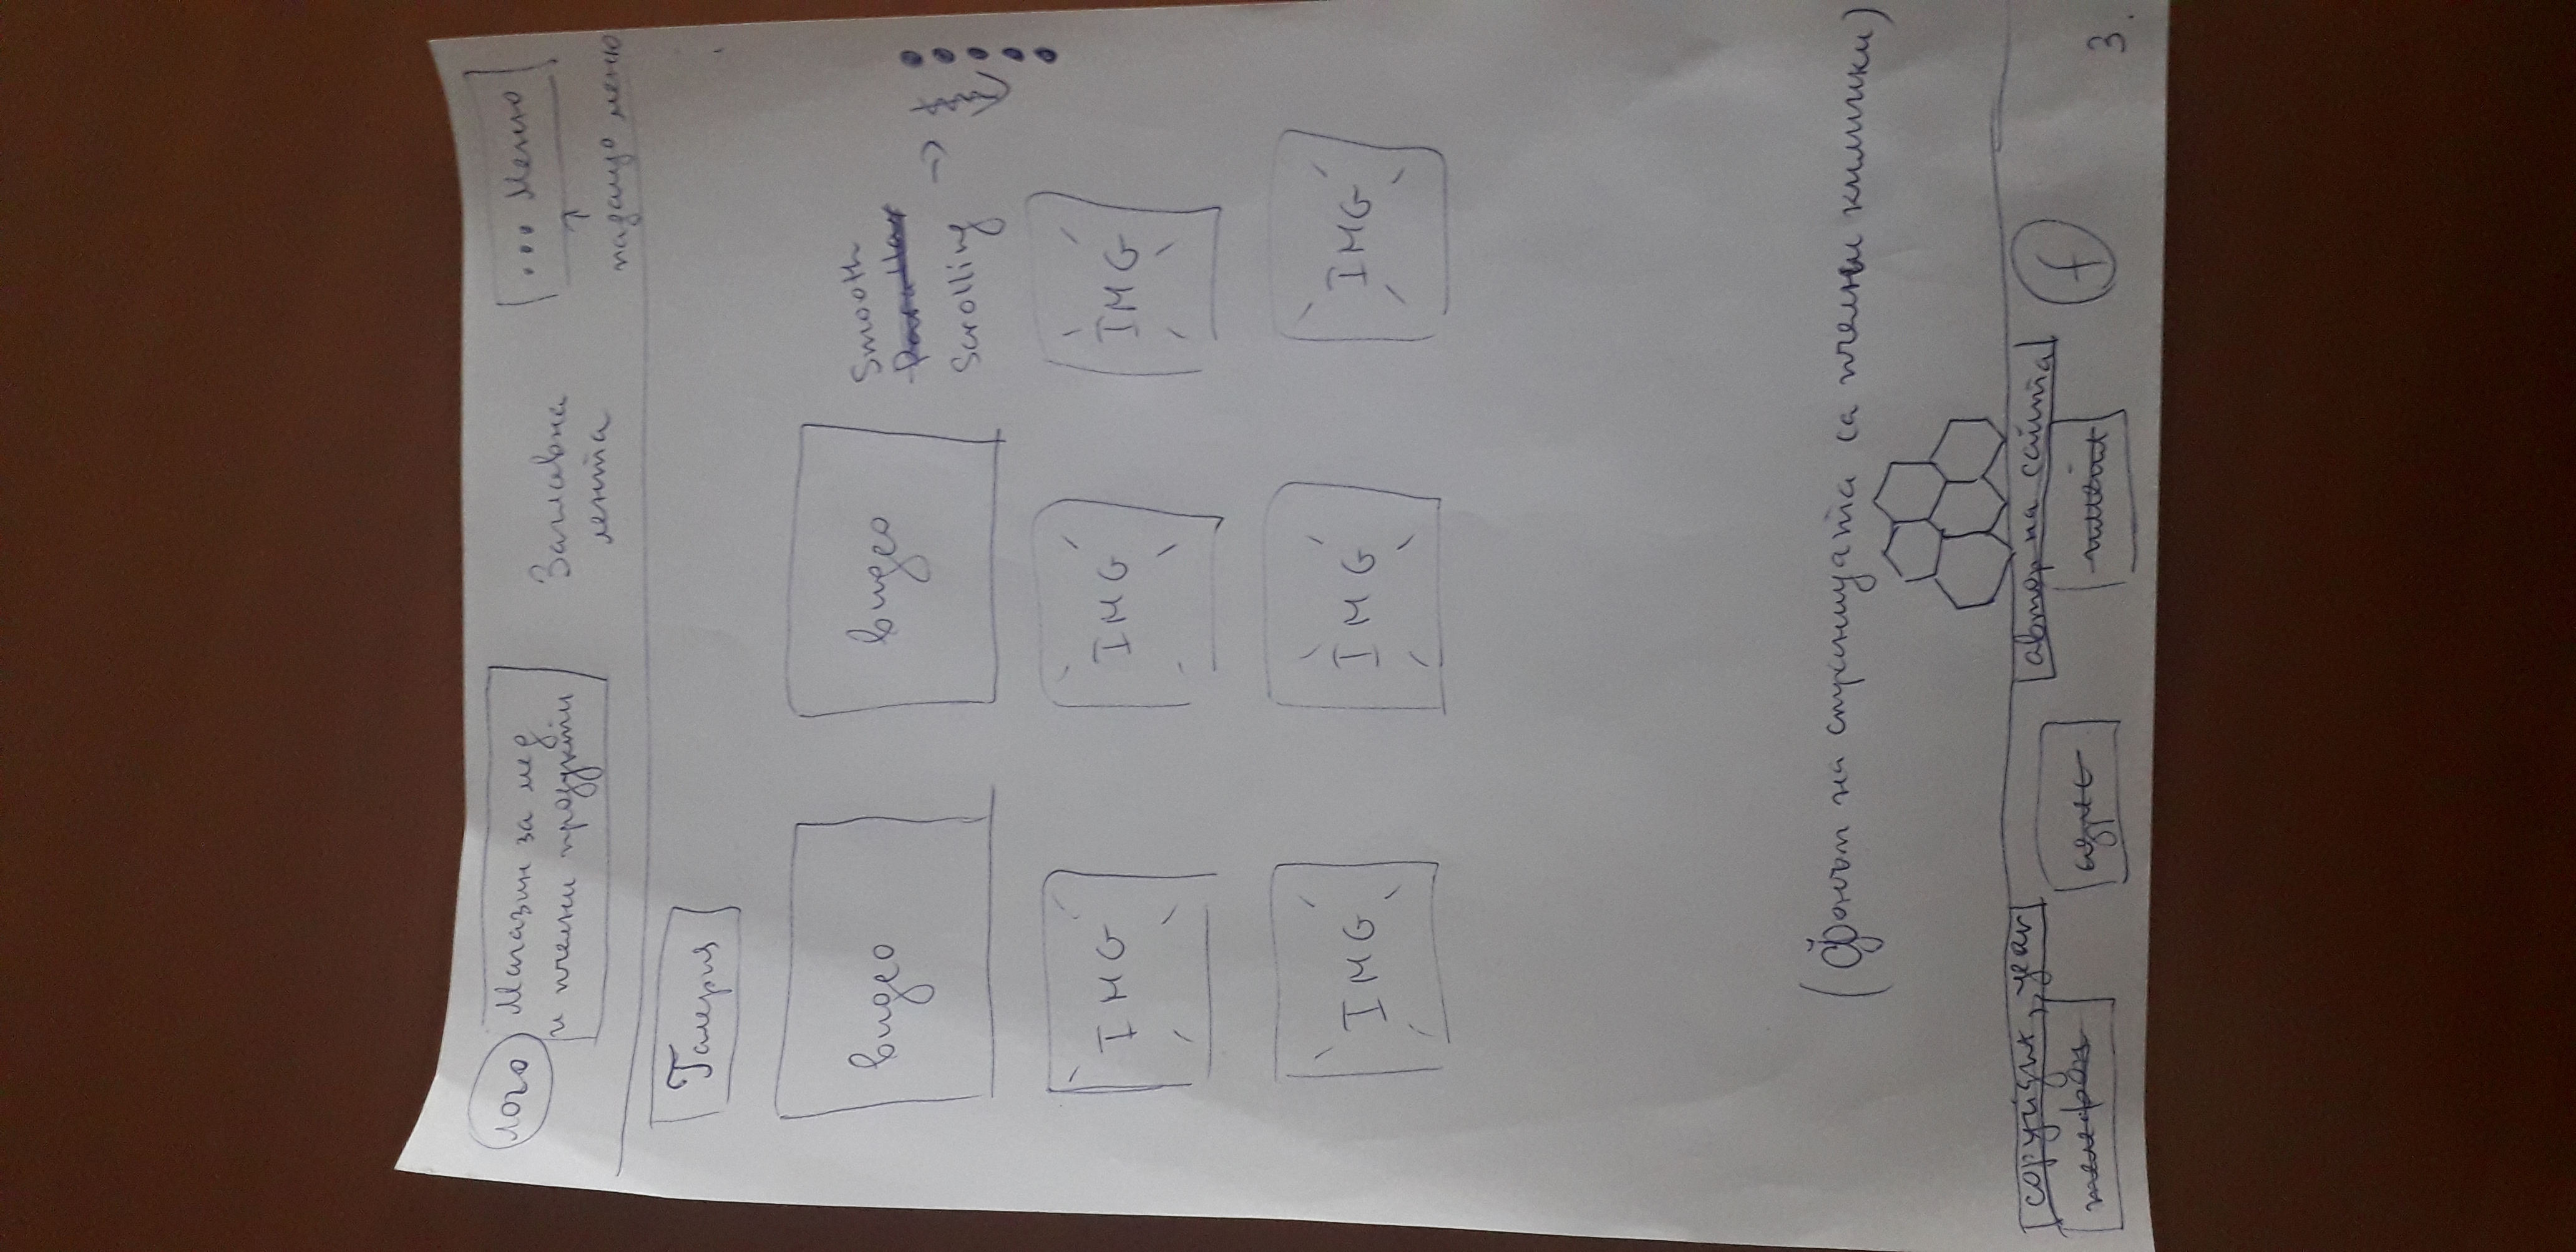 лого
Магазин за мед
и пчелни продукти
Заглавна
лента
... Меню
падащо меню
Галерия
видео
видео
Smooth
Parallax
Scrolling
IMG
IMG
IMG
IMG
IMG
IMG
(Фонът на страницата са пчелни килийки)
copyright, year
автор на сайта
телефон
адрес
имейл
f
3.